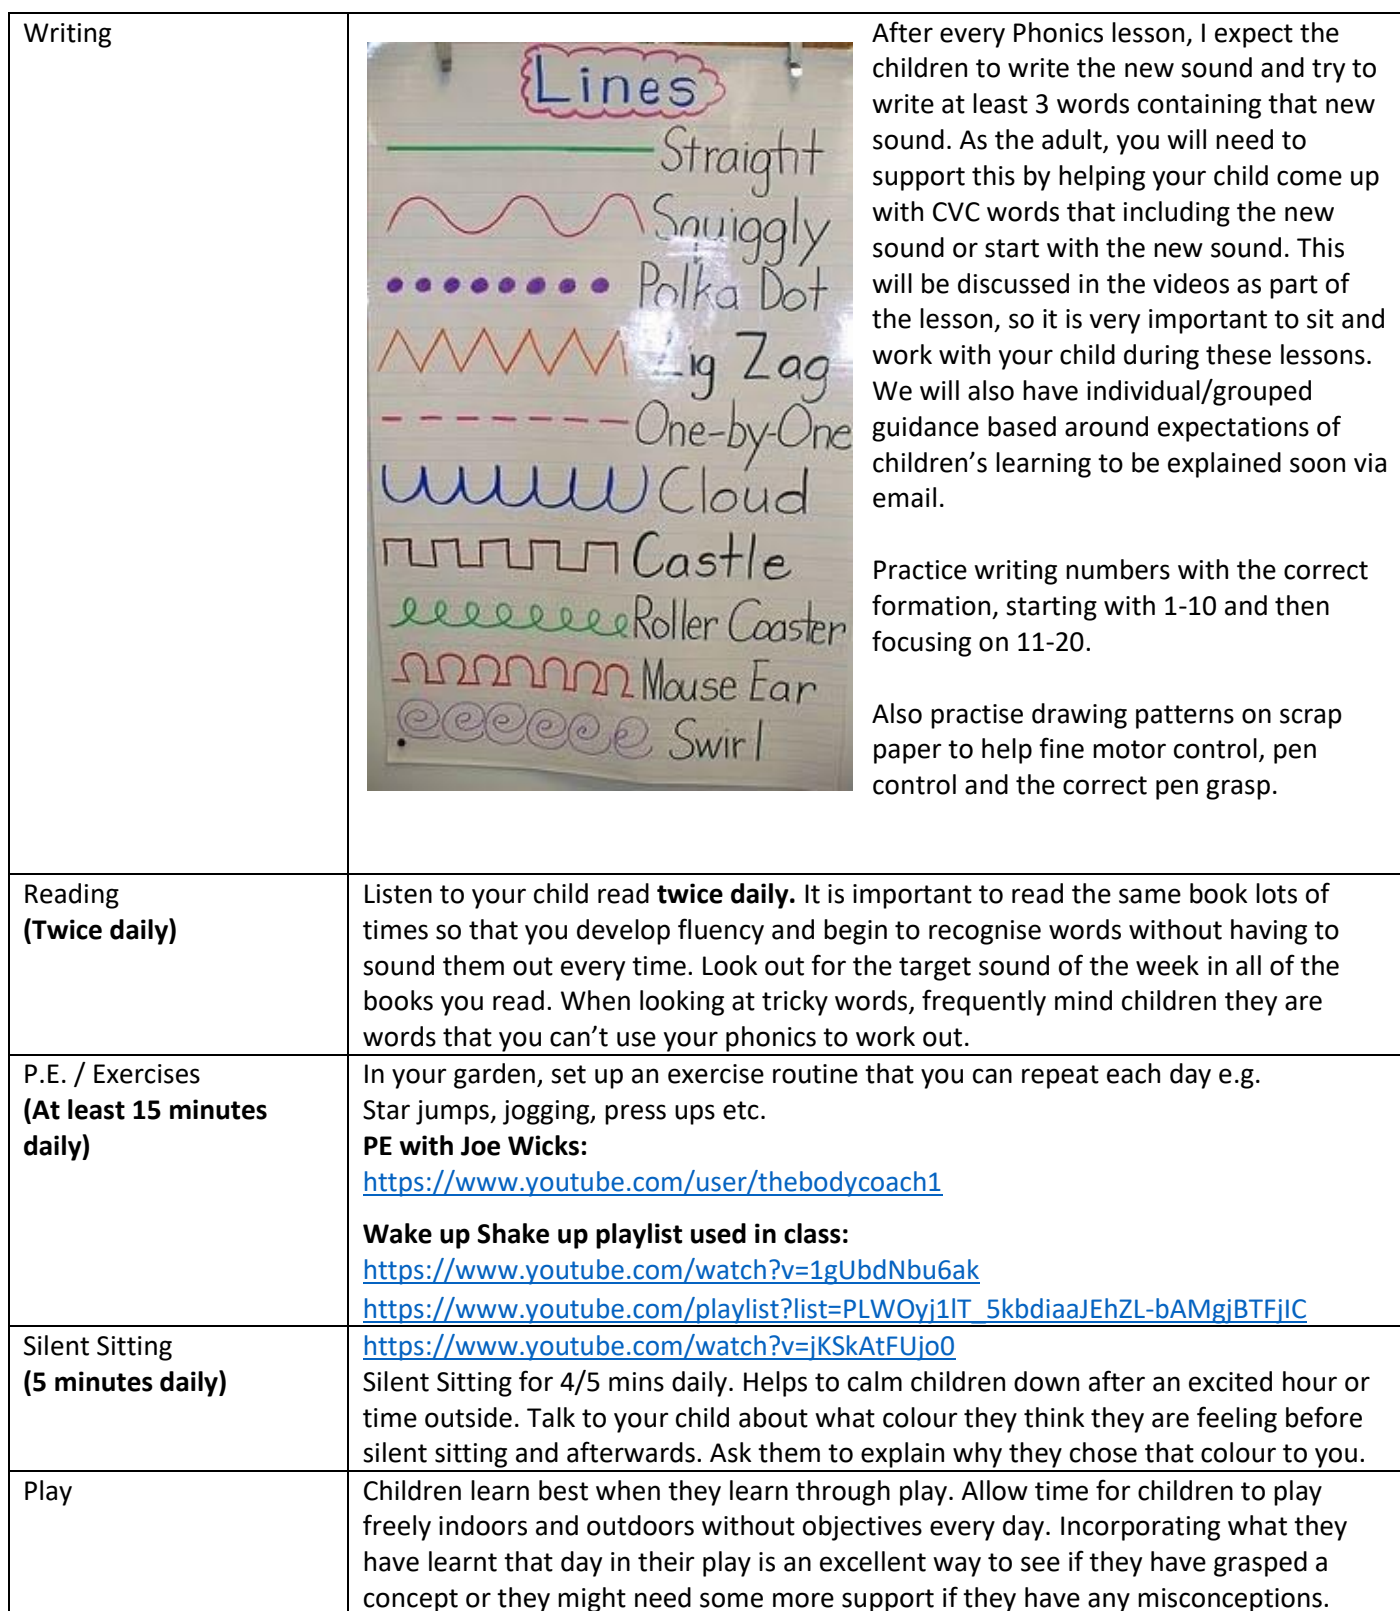 Writing
Lines
Straight
Squiggly
Polka Dot
Zig Zag
One-by-One
Cloud
Castle
Roller Coaster
Mouse Ear
Swirl
After every Phonics lesson, I expect the
children to write the new sound and try to
write at least 3 words containing that new
sound. As the adult, you will need to
support this by helping your child come up
with CVC words that including the new
sound or start with the new sound. This
will be discussed in the videos as part of
the lesson, so it is very important to sit and
work with your child during these lessons.
We will also have individual/grouped
guidance based around expectations of
children’s learning to be explained soon via
email.
Practice writing numbers with the correct
formation, starting with 1-10 and then
focusing on 11-20.
Also practise drawing patterns on scrap
paper to help fine motor control, pen
control and the correct pen grasp.
Reading
(Twice daily)
Listen to your child read twice daily. It is important to read the same book lots of
times so that you develop fluency and begin to recognise words without having to
sound them out every time. Look out for the target sound of the week in all of the
books you read. When looking at tricky words, frequently mind children they are
words that you can’t use your phonics to work out.
P.E. / Exercises
(At least 15 minutes
daily)
In your garden, set up an exercise routine that you can repeat each day e.g.
Star jumps, jogging, press ups etc.
PE with Joe Wicks:
https://www.youtube.com/user/thebodycoach1
Wake up Shake up playlist used in class:
https://www.youtube.com/watch?v=1gUbdNbu6ak
https://www.youtube.com/playlist?list=PLWOyj1lT_5kbdiaaJEhZL-bAMgjBTFjIC
Silent Sitting
(5 minutes daily)
https://www.youtube.com/watch?v=jKSkAtFUjo0
Silent Sitting for 4/5 mins daily. Helps to calm children down after an excited hour or
time outside. Talk to your child about what colour they think they are feeling before
silent sitting and afterwards. Ask them to explain why they chose that colour to you.
Play
Children learn best when they learn through play. Allow time for children to play
freely indoors and outdoors without objectives every day. Incorporating what they
have learnt that day in their play is an excellent way to see if they have grasped a
concept or they might need some more support if they have any misconceptions.